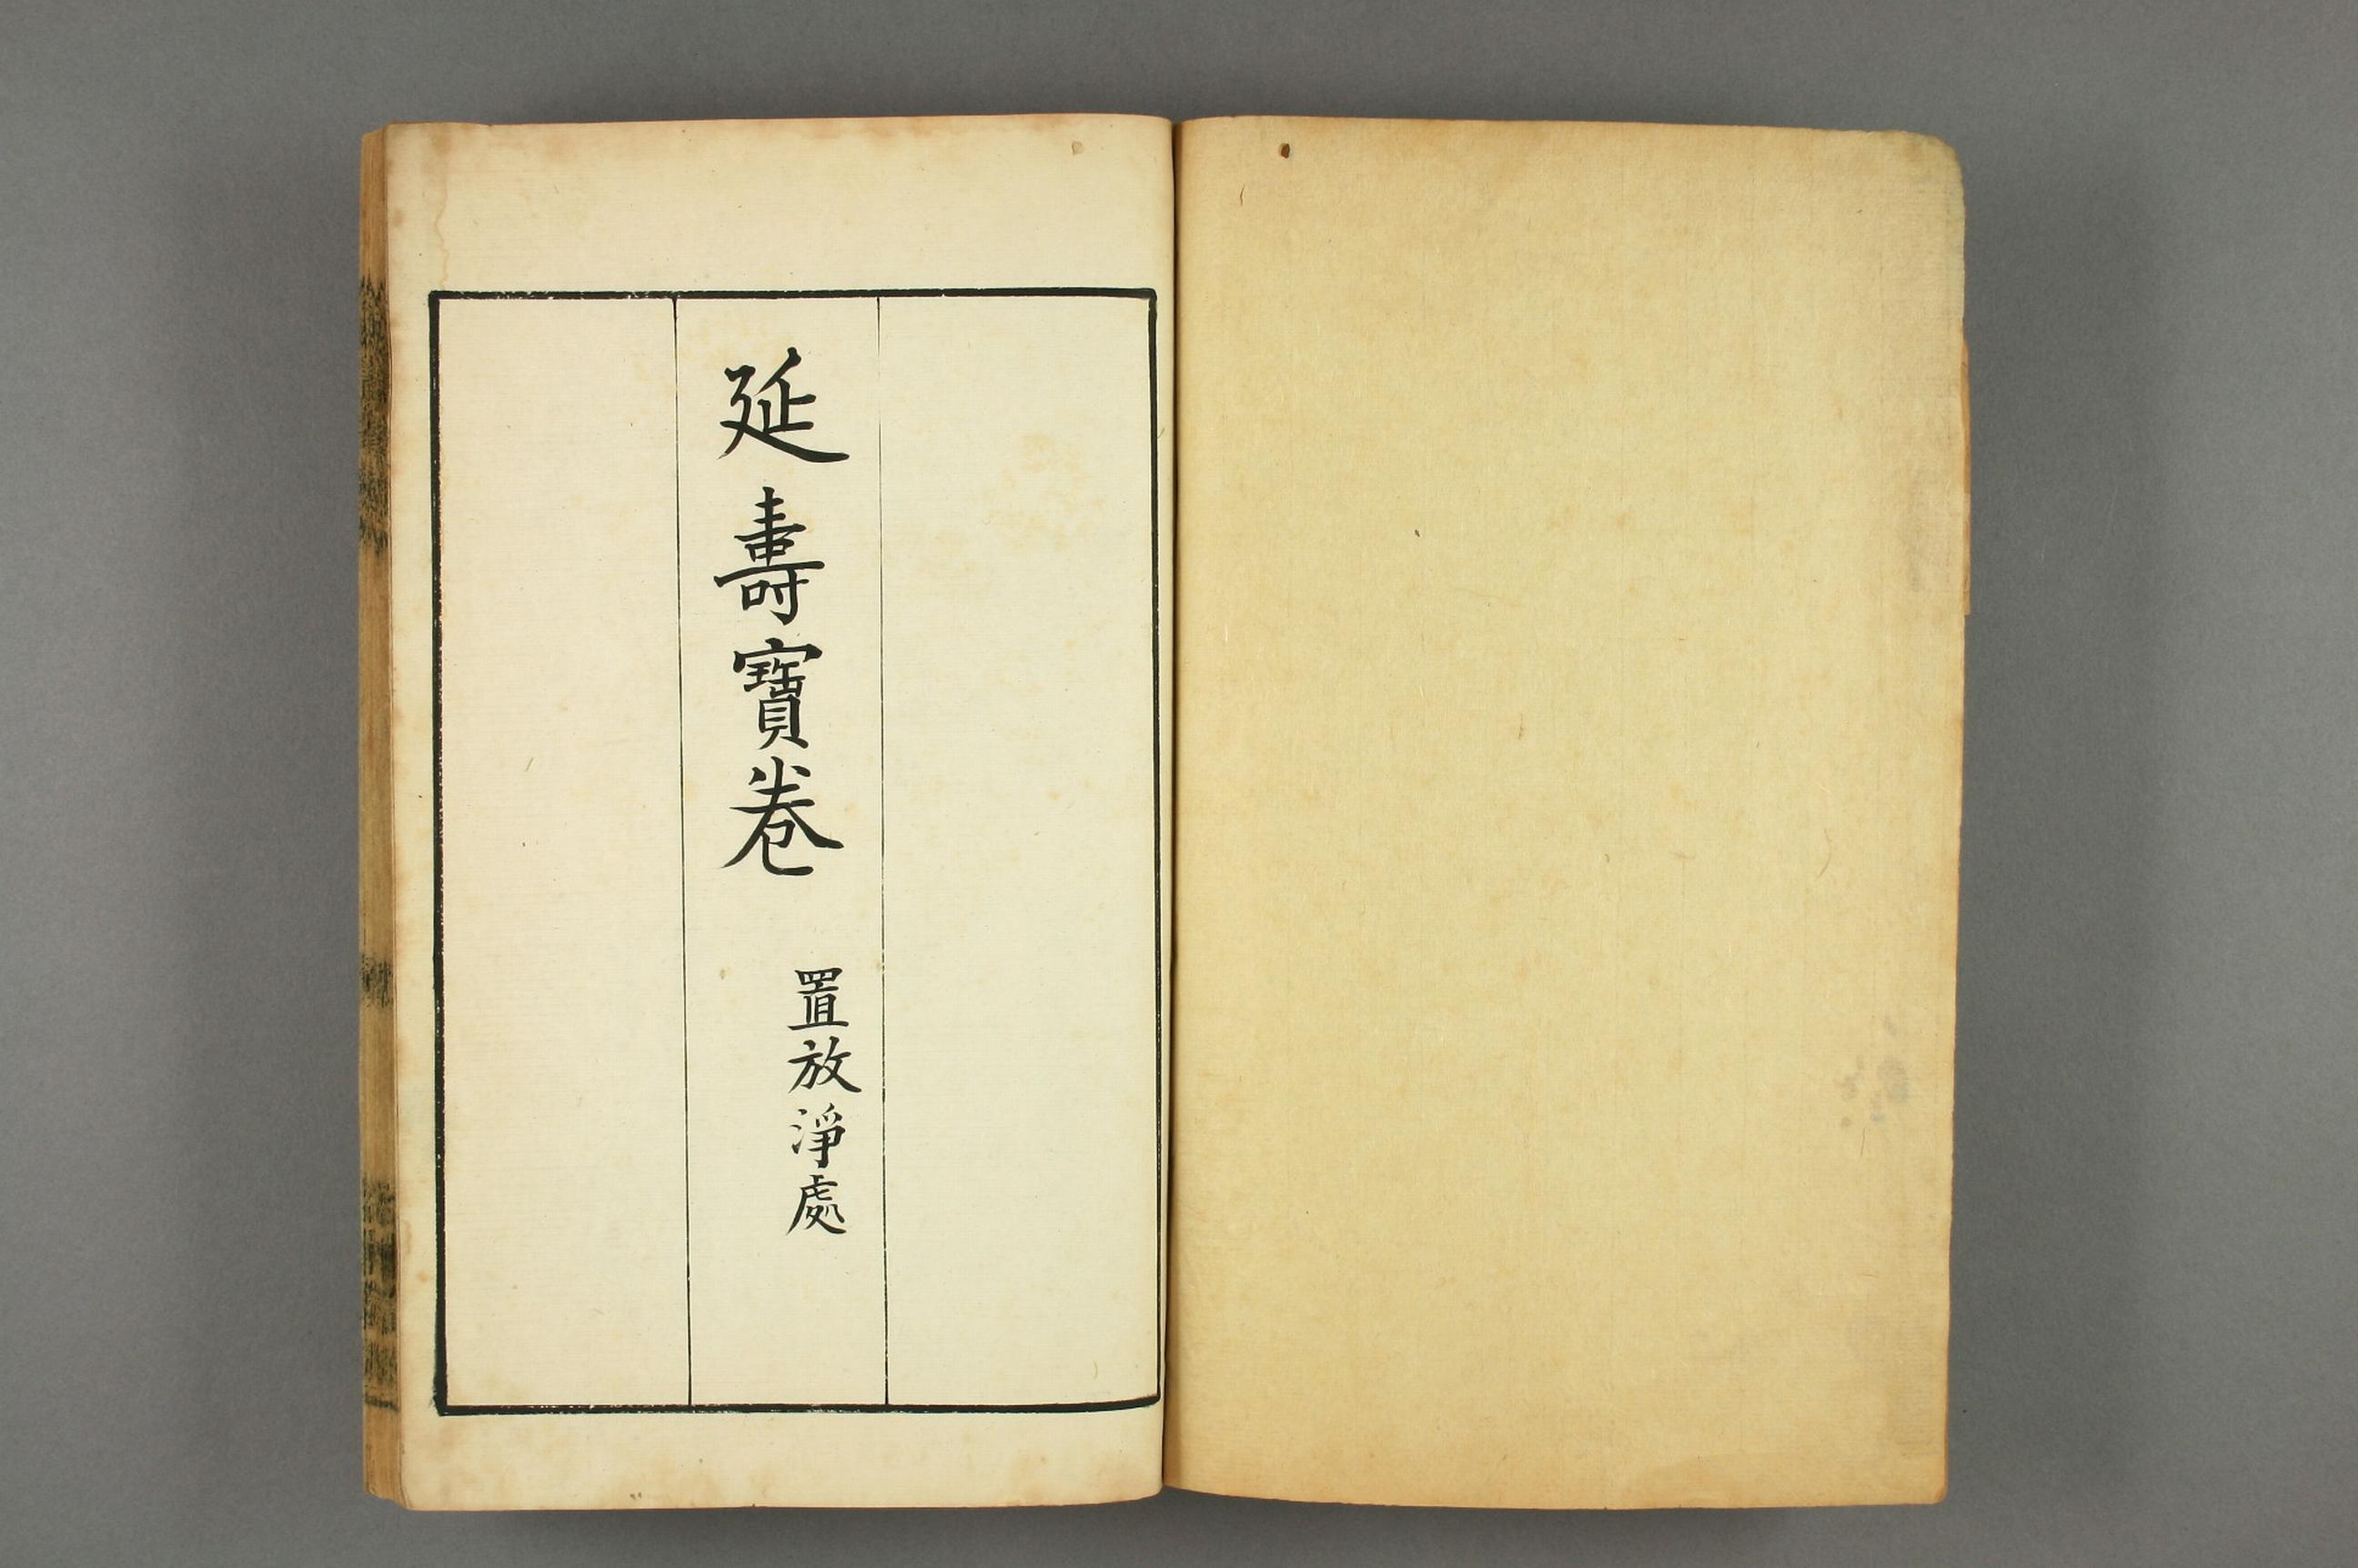 延壽寶卷
置放淨處